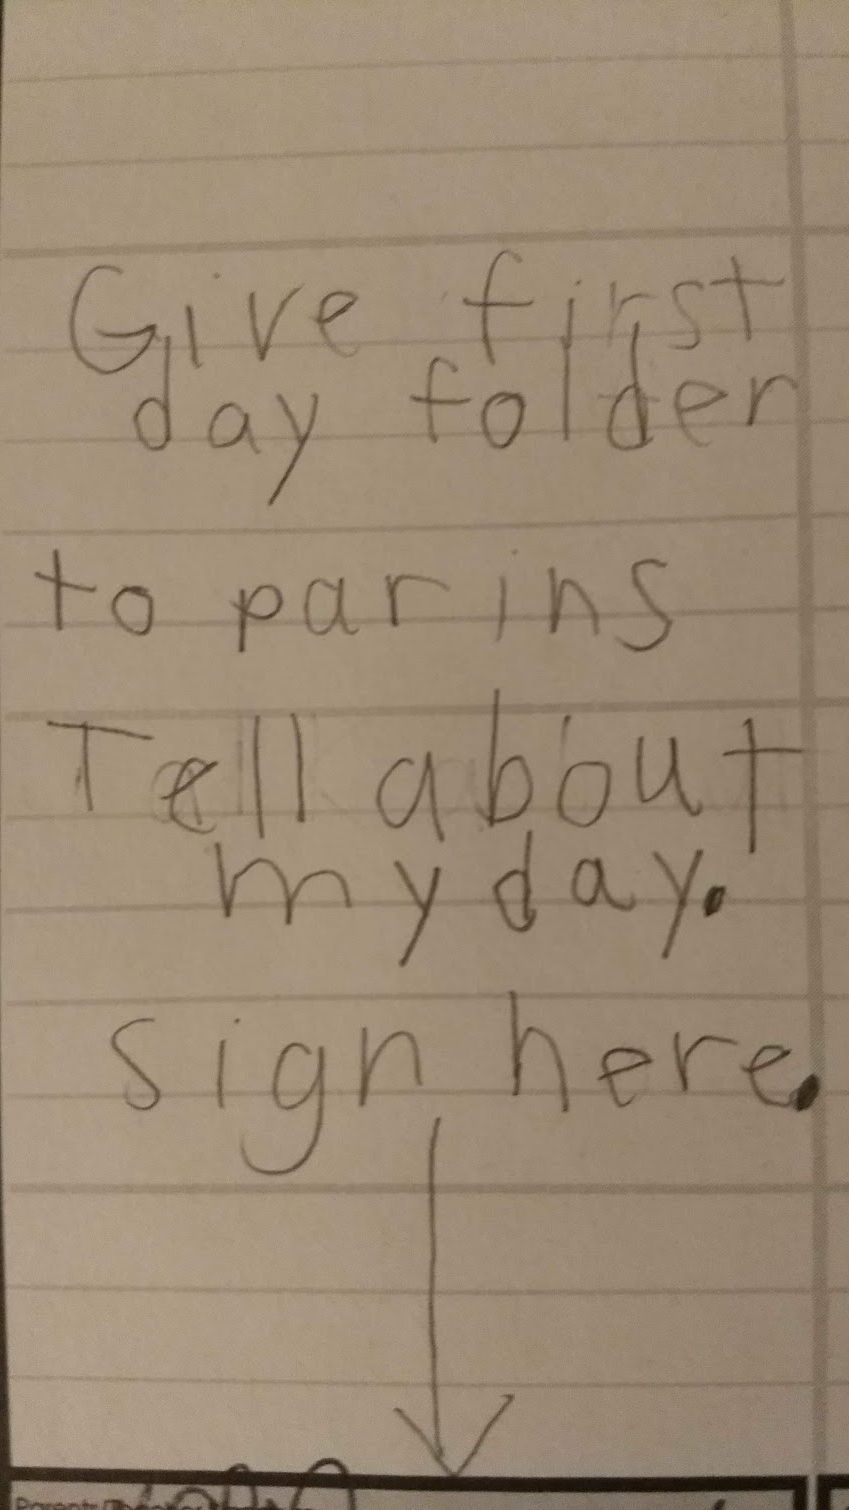 Give first
day folder
to parins
Tell about
my day.
sign here.